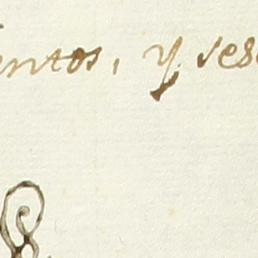 entos, y vese